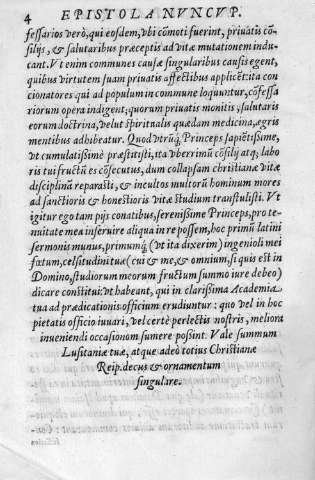 4 EPISTOLA NVNCVP.
fessarios verò, qui eosdem, vbi cõmoti fuerint, priuatis cõ-
silijs, & salutaribus præceptis ad vitæ mutationem indu-
cant. Vt enim communes causæ singularibus causis egent,
quibus virtutem suam priuatis affectibus applicẽt: ita con
cionatores qui ad populum in commune loquuntur, cõfessa
riorum opera indigent; quorum priuatis monitis, salutaris
eorum doctrina, velut spiritnalis quædam medicina, ægris
mentibus adhibeatur. Quod vtrũq; Princeps sapiẽtissime,
vt cumulatissimè præstitisti, ita vberrimũ cõsilij atq; labo
ris tui fructũ es cõsecutus, dum collapsam christianæ vitæ
disciplinã reparasti, & incultos multorũ hominum mores
ad sanctioris & honestioris vitæ studium transtulisti. Vt
igitur ego tam pijs conatibus, serenissime Princeps, pro te-
nuitate mea inseruire aliqua in re possem, hoc primũ latini
sermonis munus, primumq; (vt ita dixerim) ingenioli mei
fœtum, celsitudini tuæ (cui & me, & omnium, si quis est in
Domino, studiorum meorum fructum summo iure debeo)
dicare constitui: vt habeant, qui in clarissima Academia
tua ad prædicationis officium erudiuntur: quo vel in hoc
pietatis officio iuuari, vel certè perlectis nostris, meliora
inueniendi occasionem sumere possint. Vale summum
Lusitaniæ tuæ, atque adeò totius Christianæ
Reip. decus & ornamentum
singulare.